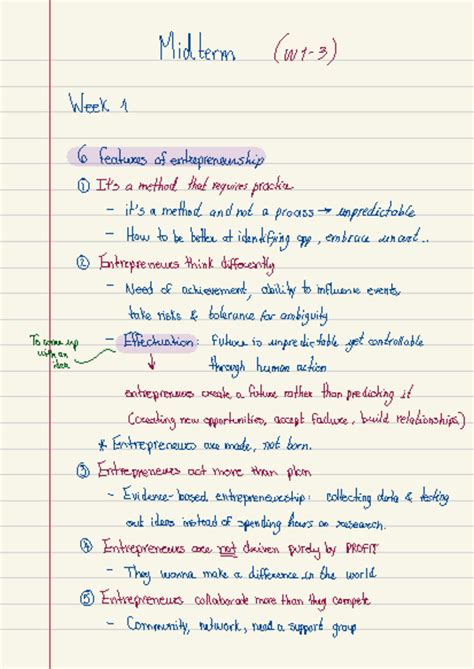 Midterm (W1-3)
Week 1
6 features of entrepreneurship
① It's a method that requires practice
- it's a method and not a process → unpredictable
- How to be better at identifying opp, embrace uncert..
② Entrepreneurs think differently
- Need of achievement, ability to influence events,
take risks & tolerance for ambiguity
To come up
with an
idea
- Effectuation: Future is unpredictable yet controllable
through human action
entrepreneurs create a future rather than predicting it
(creating new opportunities, accept failure, build relationships)
* Entrepreneurs are made, not born.
③ Entrepreneurs act more than plan
- Evidence-based entrepreneurship: collecting data & testing
out ideas instead of spending hours on research.
④ Entrepreneurs are not driven purely by PROFIT
- They wanna make a difference in the world
⑤ Entrepreneurs collaborate more than they compete
- Community, network, need a support group